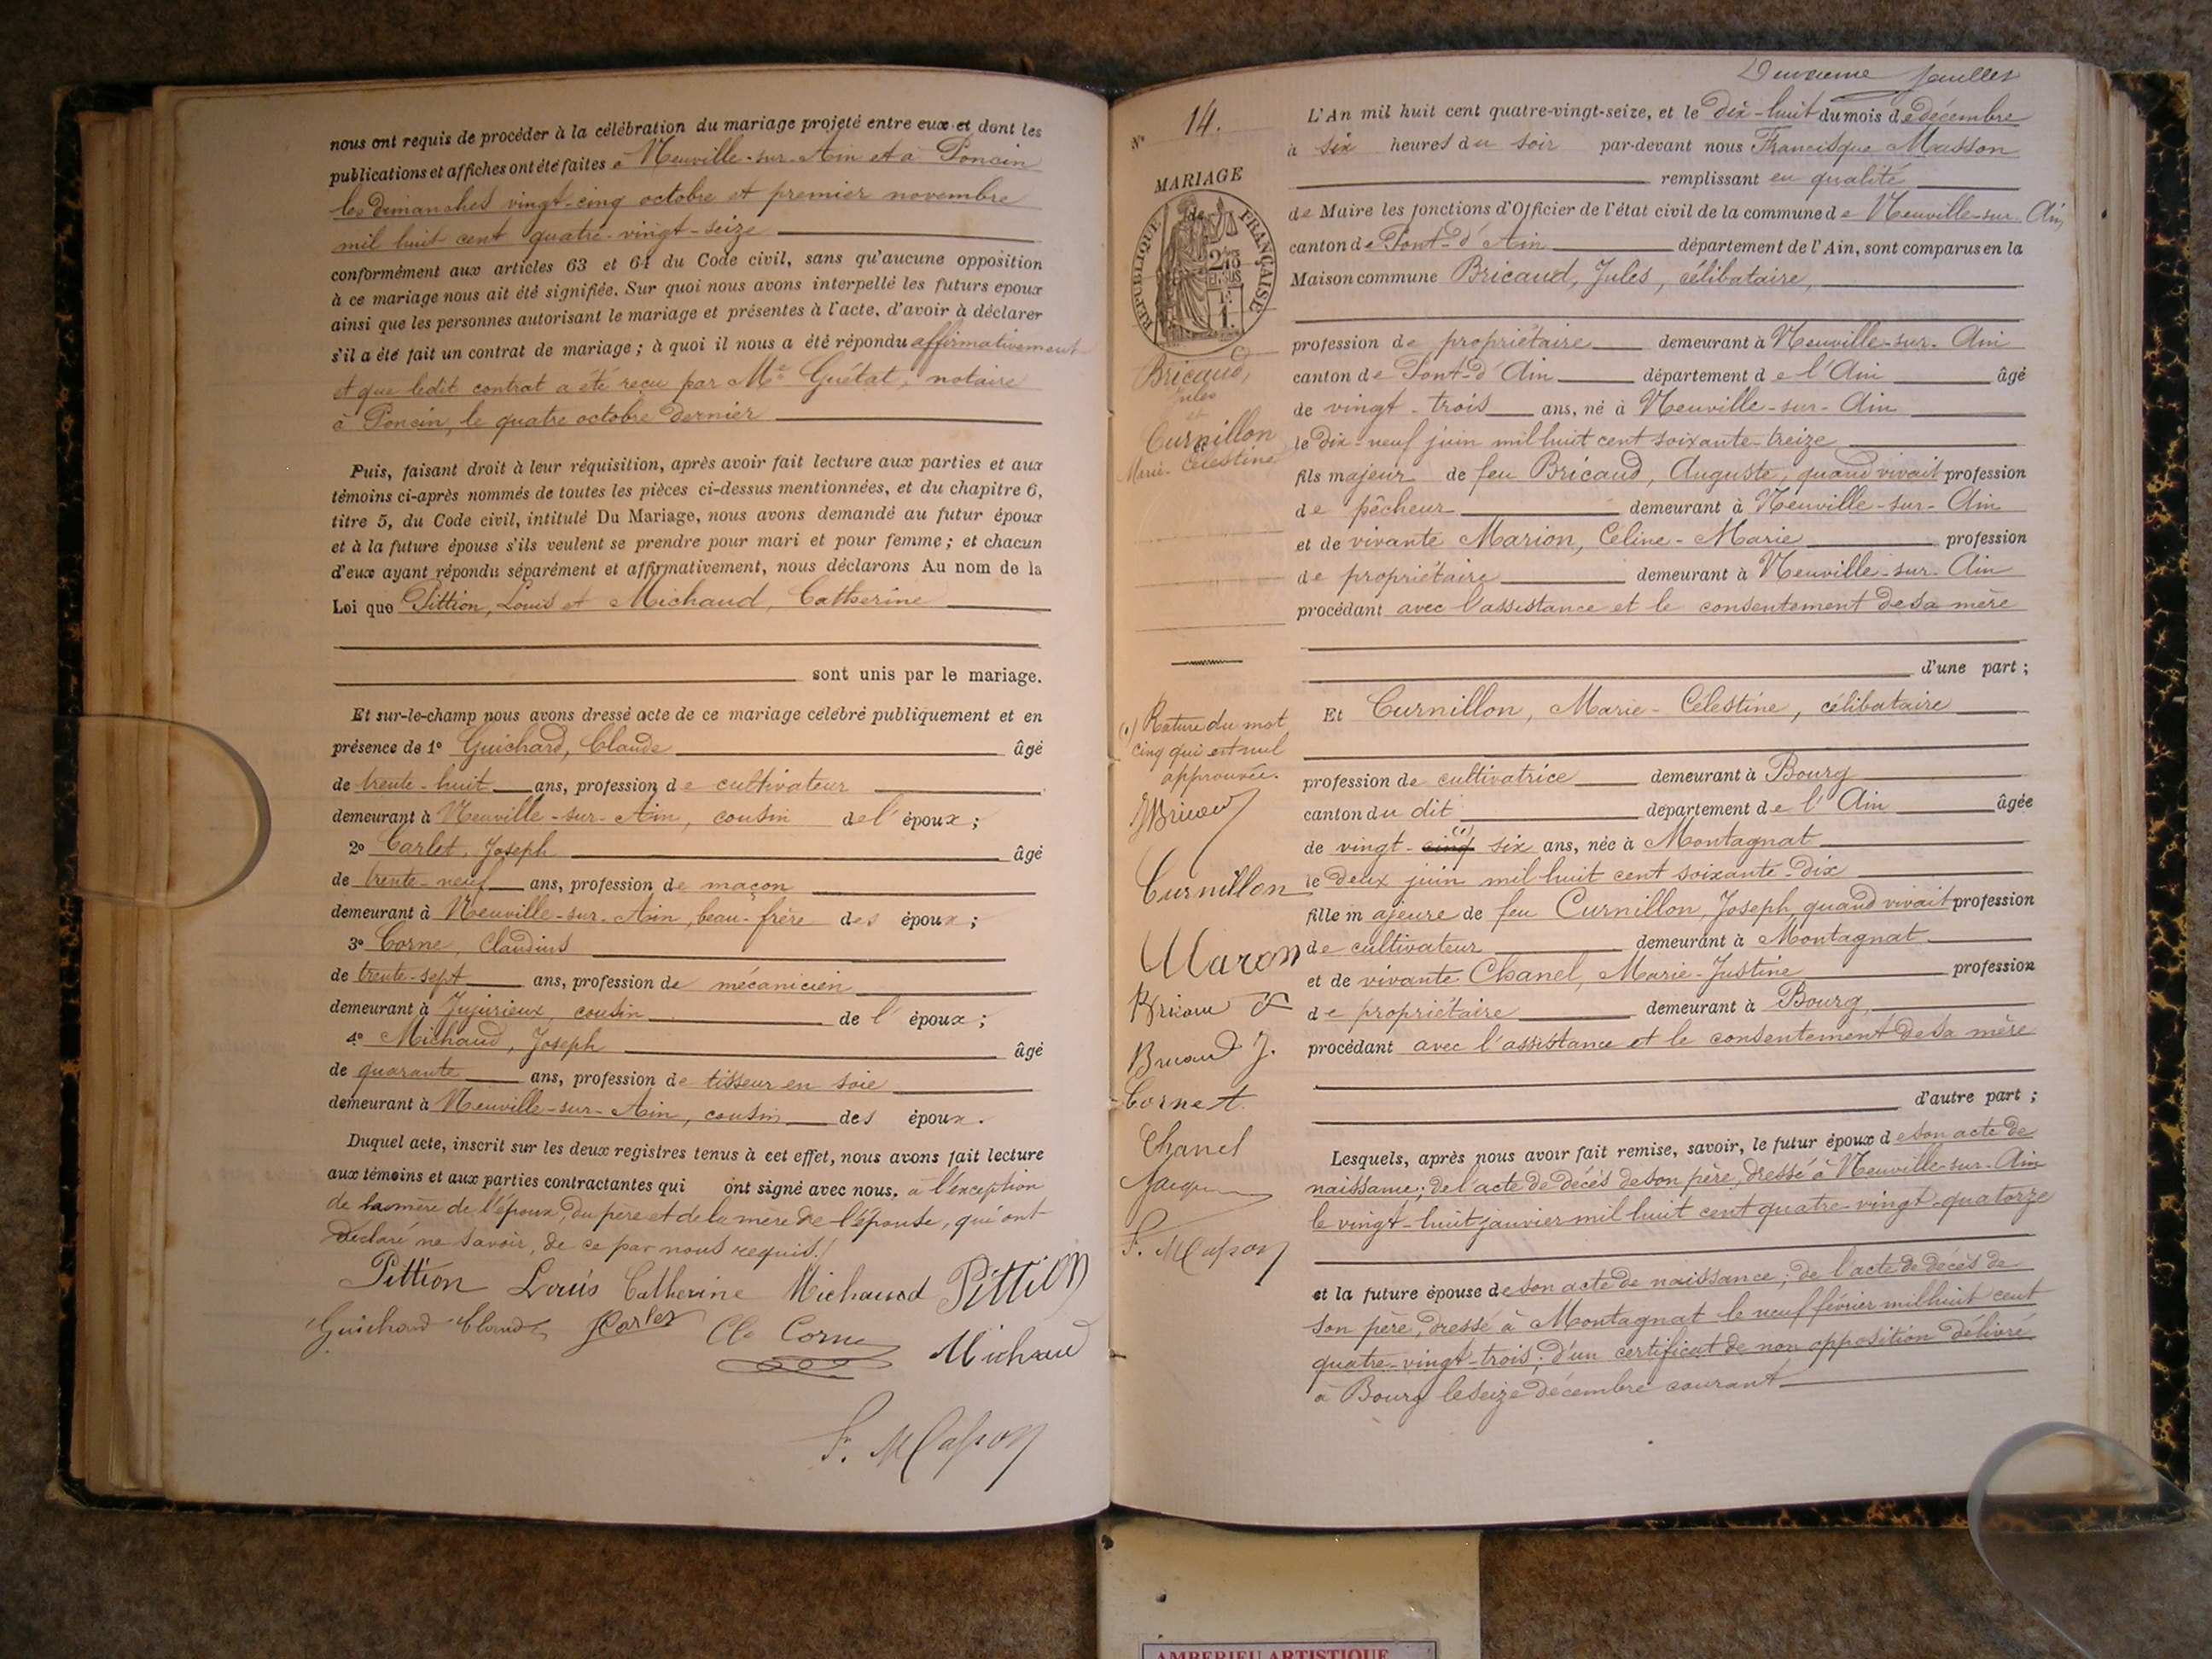 nous ont requis de procéder à la célébration du mariage projeté entre eux et dont les
publications et affiches ont été faites à Neuville-sur-Ain et à Poncin
les dimanches vingt-cinq octobre et premier novembre
mil huit cent quatre-vingt-seize
conformément aux articles 63 et 64 du Code civil, sans qu'aucune opposition
à ce mariage nous ait été signifiée. Sur quoi nous avons interpellé les futurs époux
ainsi que les personnes autorisant le mariage et présentes à l'acte, d'avoir à déclarer
s'il a été fait un contrat de mariage ; à quoi il nous a été répondu affirmativement
et que ledit contrat a été reçu par Me Guétat, notaire
à Poncin, le quatre octobre dernier
Puis, faisant droit à leur réquisition, après avoir fait lecture aux parties et aux
témoins ci-après nommés de toutes les pièces ci-dessus mentionnées, et du chapitre 6,
titre 5, du Code civil, intitulé Du Mariage, nous avons demandé au futur époux
et à la future épouse s'ils veulent se prendre pour mari et pour femme ; et chacun
d'eux ayant répondu séparément et affirmativement, nous déclarons Au nom de la
Loi que Pittion, Louis et Michaud, Catherine
sont unis par le mariage.
Et sur-le-champ nous avons dressé acte de ce mariage célébré publiquement et en
présence de 1º Guichard, Claude âgé
de trente-huit ans, profession de cultivateur
demeurant à Neuville-sur-Ain, cousin de l'époux ;
2º Carlet, Joseph âgé
de trente-neuf ans, profession de maçon
demeurant à Neuville-sur-Ain, beau-frère des époux ;
3º Corne, Claudius
de trente-sept ans, profession de mécanicien
demeurant à Jujurieux, cousin de l'époux ;
4º Michaud, Joseph âgé
de quarante ans, profession de tisseur en soie
demeurant à Neuville-sur-Ain, cousin des époux.
Duquel acte, inscrit sur les deux registres tenus à cet effet, nous avons fait lecture
aux témoins et aux parties contractantes qui ont signé avec nous, à l'exception
de la mère de l'époux, du père et de la mère de l'épouse, qui ont
déclaré ne savoir, de ce par nous requis.
Pittion Louis Catherine Michaud Pittion
Guichard Claude Carlet Cl. Corne Michaud
F. Masson
Deuxième feuillet
Nº 14.
MARIAGE
RÉPUBLIQUE FRANÇAISE
Bricaud,
Jules
et
Curnillon
Marie-Célestine
(1) Rature du mot
cinq qui est nul
approuvée.
Curnillon
Bricaud J.
Cornet
Chanel
F. Masson
L'An mil huit cent quatre-vingt-seize, et le dix-huit du mois de décembre
à six heures du soir par-devant nous Francisque Masson
remplissant en qualité
de Maire les fonctions d'Officier de l'état civil de la commune de Neuville-sur-Ain,
canton de Pont-d'Ain département de l'Ain, sont comparus en la
Maison commune Bricaud, Jules, célibataire,
profession de propriétaire demeurant à Neuville-sur-Ain
canton de Pont-d'Ain département de l'Ain âgé
de vingt-trois ans, né à Neuville-sur-Ain
le dix-neuf juin mil huit cent soixante-treize
fils majeur de feu Bricaud, Auguste, quand vivait profession
de pêcheur demeurant à Neuville-sur-Ain
et de vivante Marion, Céline-Marie profession
de propriétaire demeurant à Neuville-sur-Ain
procédant avec l'assistance et le consentement de sa mère
d'une part ;
Et Curnillon, Marie-Célestine, célibataire
profession de cultivatrice demeurant à Bourg
canton du dit département de l'Ain âgée
de vingt-cinq (1) six ans, née à Montagnat
le deux juin mil huit cent soixante-dix
fille majeure de feu Curnillon, Joseph, quand vivait profession
de cultivateur demeurant à Montagnat
et de vivante Chanel, Marie-Justine profession
de propriétaire demeurant à Bourg,
procédant avec l'assistance et le consentement de sa mère
d'autre part ;
Lesquels, après nous avoir fait remise, savoir, le futur époux de son acte de
naissance ; de l'acte de décès de son père, dressé à Neuville-sur-Ain
le vingt-huit janvier mil huit cent quatre-vingt-quatorze
et la future épouse de son acte de naissance ; de l'acte de décès de
son père, dressé à Montagnat le neuf février mil huit cent
quatre-vingt-trois ; d'un certificat de non opposition délivré
à Bourg le seize décembre courant
AMBERIEU ARTISTIQUE